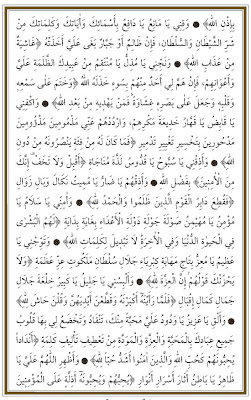 بِإِذْنِ اللهِ﴾ ● وَقِنِي يَا مَانِعُ يَا دَافِعُ بِأَسْمَائِكَ وَآيَاتِكَ وَكَلِمَاتِكَ مِنْ
شَرِّ الشَّيْطَانِ وَالسُّلْطَانِ، فَإِنْ ظَالِمٌ أَوْ جَبَّارٌ بَغَى عَلَيَّ أَخَذَتْهُ ﴿غَاشِيَةٌ
مِنْ عَذَابِ اللهِ﴾ ● وَنَجِّنِي يَا مُذِلُّ يَا مُنْتَقِمُ مِنْ عَبِيدِكَ الظَّلَمَةِ عَلَيَّ
وَأَعْوَانِهِمْ، فَإِنْ هَمَّ لِي أَحَدٌ مِنْهُمْ بِسُوءٍ خَذَلَهُ اللهُ ﴿وَخَتَمَ عَلَى سَمْعِهِ
وَقَلْبِهِ وَجَعَلَ عَلَى بَصَرِهِ غِشَاوَةً فَمَنْ يَهْدِيهِ مِنْ بَعْدِ اللهِ﴾ ● وَاكْفِنِي
يَا قَابِضُ يَا قَهَّارُ خَدِيعَةَ مَكْرِهِمْ، وَارْدُدْهُمْ عَنِّي مَذْمُومِينَ مَذْؤُومِينَ
مَدْحُورِينَ بِتَخْسِيرِ تَغْيِيرِ تَدْمِيرِ ﴿فَمَا كَانَ لَهُ مِنْ فِئَةٍ يَنْصُرُونَهُ مِنْ دُونِ
اللهِ﴾ ● وَأَذِقْنِي يَا سُبُّوحُ يَا قُدُّوسُ لَذَّةَ مُنَاجَاةِ ﴿أَقْبِلْ وَلَا تَخَفْ إِنَّكَ
مِنَ الْآمِنِينَ﴾ بِفَضْلِ اللهِ ● وَأَذِقْهُمْ يَا ضَارُّ يَا مُمِيتُ نَكَالَ وَبَالِ زَوَالِ
﴿فَقُطِعَ دَابِرُ الْقَوْمِ الَّذِينَ ظَلَمُوا وَالْحَمْدُ لِلَّهِ﴾ ● وَآمِنِّي يَا سَلَامُ يَا
مُؤْمِنُ يَا مُهَيْمِنُ صَوْلَةَ جَوْلَةِ دَوْلَةِ الْأَعْدَاءِ بِغَايَةِ بِدَايَةِ ﴿لَهُمُ الْبُشْرَى
فِي الْحَيَوةِ الدُّنْيَا وَفِي الْآخِرَةِ لَا تَبْدِيلَ لِكَلِمَاتِ اللهِ﴾ ● وَتَوِّجْنِي يَا
عَظِيمُ يَا مُعِزُّ بِتَاجِ مَهَابَةِ كِبْرِيَاءِ جَلَالِ سُلْطَانِ مَلَكُوتِ عِزِّ عَظَمَةِ ﴿وَلَا
يَحْزُنْكَ قَوْلُهُمْ إِنَّ الْعِزَّةَ لِلَّهِ﴾ ● وَأَلْبِسْنِي يَا جَلِيلُ يَا كَبِيرُ خِلْعَةَ جَلَالِ
جَمَالِ كَمَالِ إِقْبَالِ ﴿فَلَمَّا رَأَيْنَهُ أَكْبَرْنَهُ وَقَطَّعْنَ أَيْدِيَهُنَّ وَقُلْنَ حَاشَ لِلَّهِ﴾
● وَأَلْقِ يَا عَزِيزُ يَا وَدُودُ عَلَيَّ مَحَبَّةً مِنْكَ، تَنْقَادُ وَتَخْضَعُ لِي بِهَا قُلُوبُ
جَمِيعِ عِبَادِكَ بِالْمَحَبَّةِ وَالْعِزَّةِ وَالْمَوَدَّةِ مِنْ تَعْطِيفِ تَأْلِيفِ كَلِمَةِ ﴿أَنْدَادًا
يُحِبُّونَهُمْ كَحُبِّ اللهِ وَالَّذِينَ آمَنُوا أَشَدُّ حُبًّا لِلَّهِ﴾ ● وَأَظْهِرِ اللَّهُمَّ عَلَيَّ يَا
ظَاهِرُ يَا بَاطِنُ آثَارَ أَسْرَارِ أَنْوَارِ ﴿يُحِبُّهُمْ وَيُحِبُّونَهُ أَذِلَّةٍ عَلَى الْمُؤْمِنِينَ